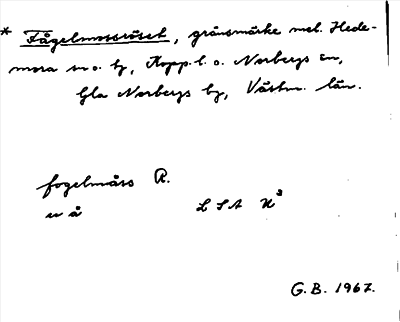 * Fågelmossröset, gränsmärke mel. Hede-
mora sn o. by, Kopp. l. o. Norbergs sn,
Gla Norbergs by, Västm. län.
fogelmåss R.
u å LSA N³
G.B. 1967.